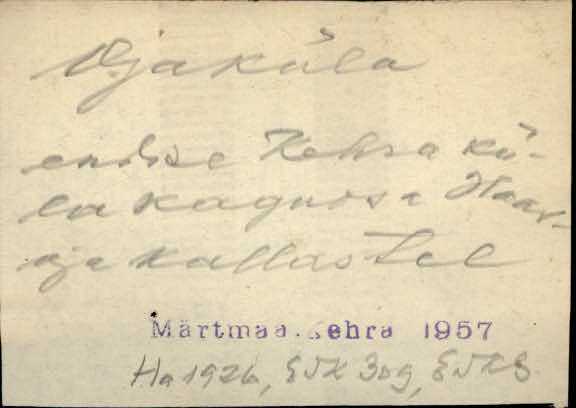 Ojaküla
endise Kehra kü-
la kaguosa Haav-
oja kallastel
Märtmaa. Kehra 1957
Ha 1926, EVK 309, EVKS